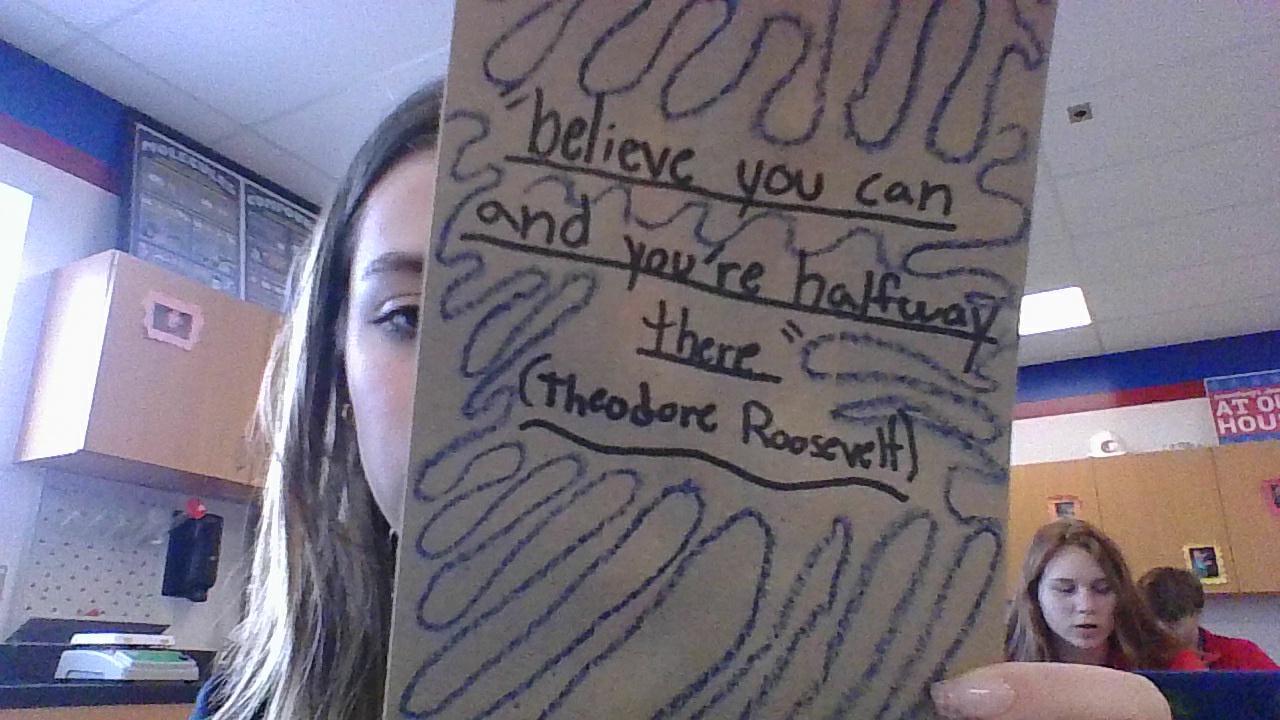 MOLECULES
"believe you can
and you're halfway
there"
(Theodore Roosevelt)
AT O
HOU